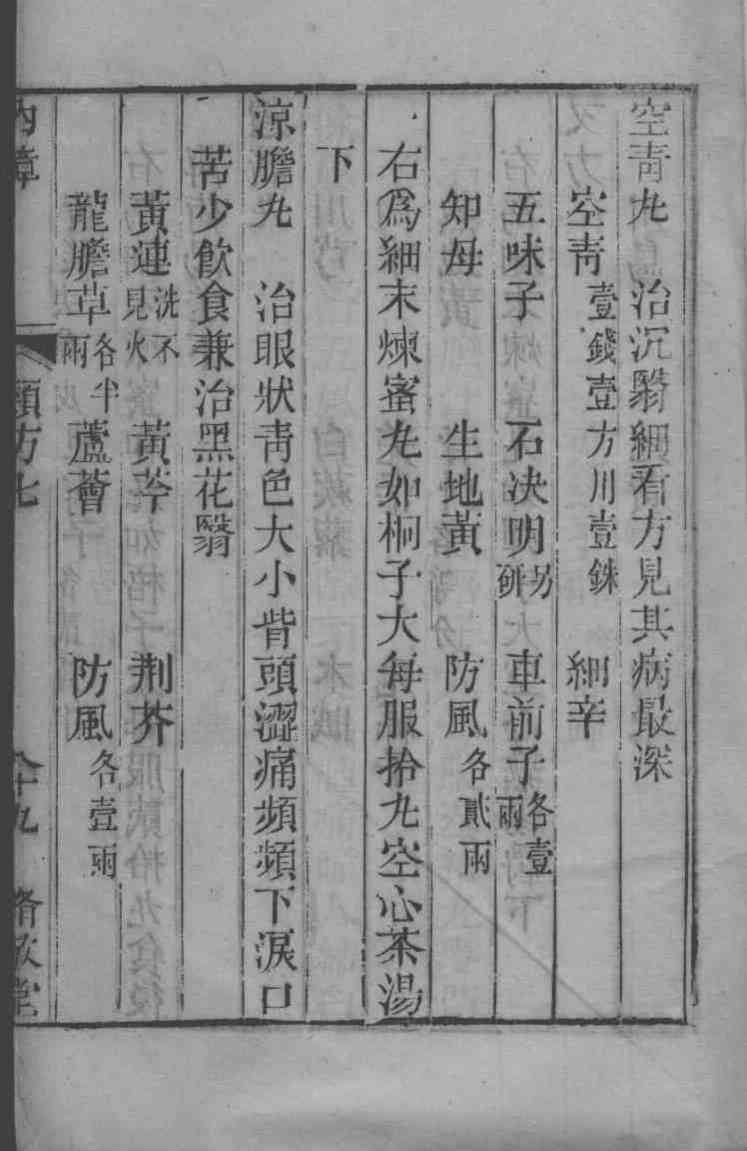 空青丸　治沉翳細看方見其病最深
空青壹錢壹方川壹銖　細辛
五味子　石決明另研　車前子各壹兩
知母　生地黃　防風各貳兩
右爲細末煉蜜丸如桐子大每服拾丸空心茶湯
下
涼膽丸　治眼狀青色大小眥頭澀痛頻頻下淚口
苦少飲食兼治黑花翳
黃連洗不見火　黃芩　荆芥
龍膽草各半兩　蘆薈　防風各壹兩
內障　類方七